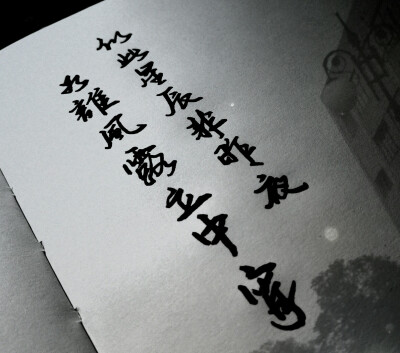 似此星辰非昨夜
为誰風露立中宵